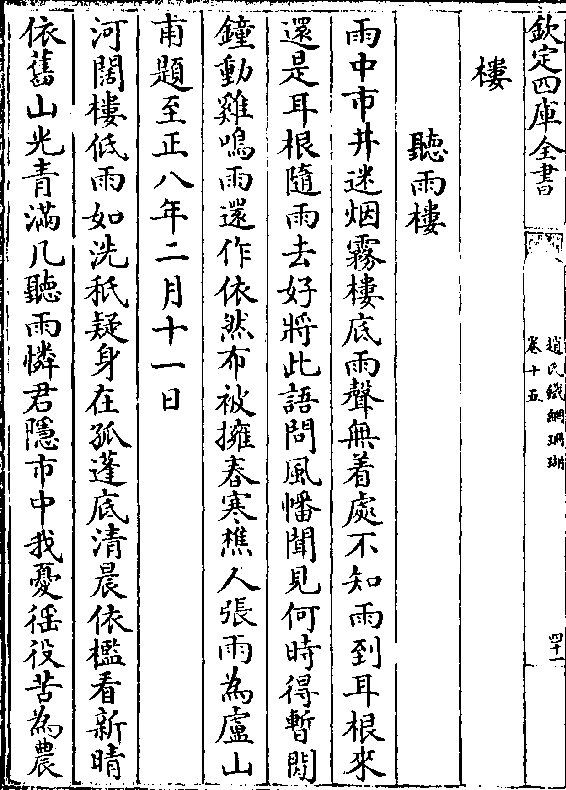 欽定四庫全書
趙氏鐵網珊瑚
卷十五
四十一
樓
聽雨樓
雨中市井迷烟霧樓底雨聲無着處不知雨到耳根來
還是耳根隨雨去好將此語問風幡聞見何時得暫閒
鐘動雞鳴雨還作依然布被擁春寒樵人張雨為盧山
甫題至正八年二月十一日
河闊樓低雨如洗秖疑身在孤蓬底清晨依檻看新晴
依舊山光青滿几聽雨憐君隱市中我憂徭役苦為農